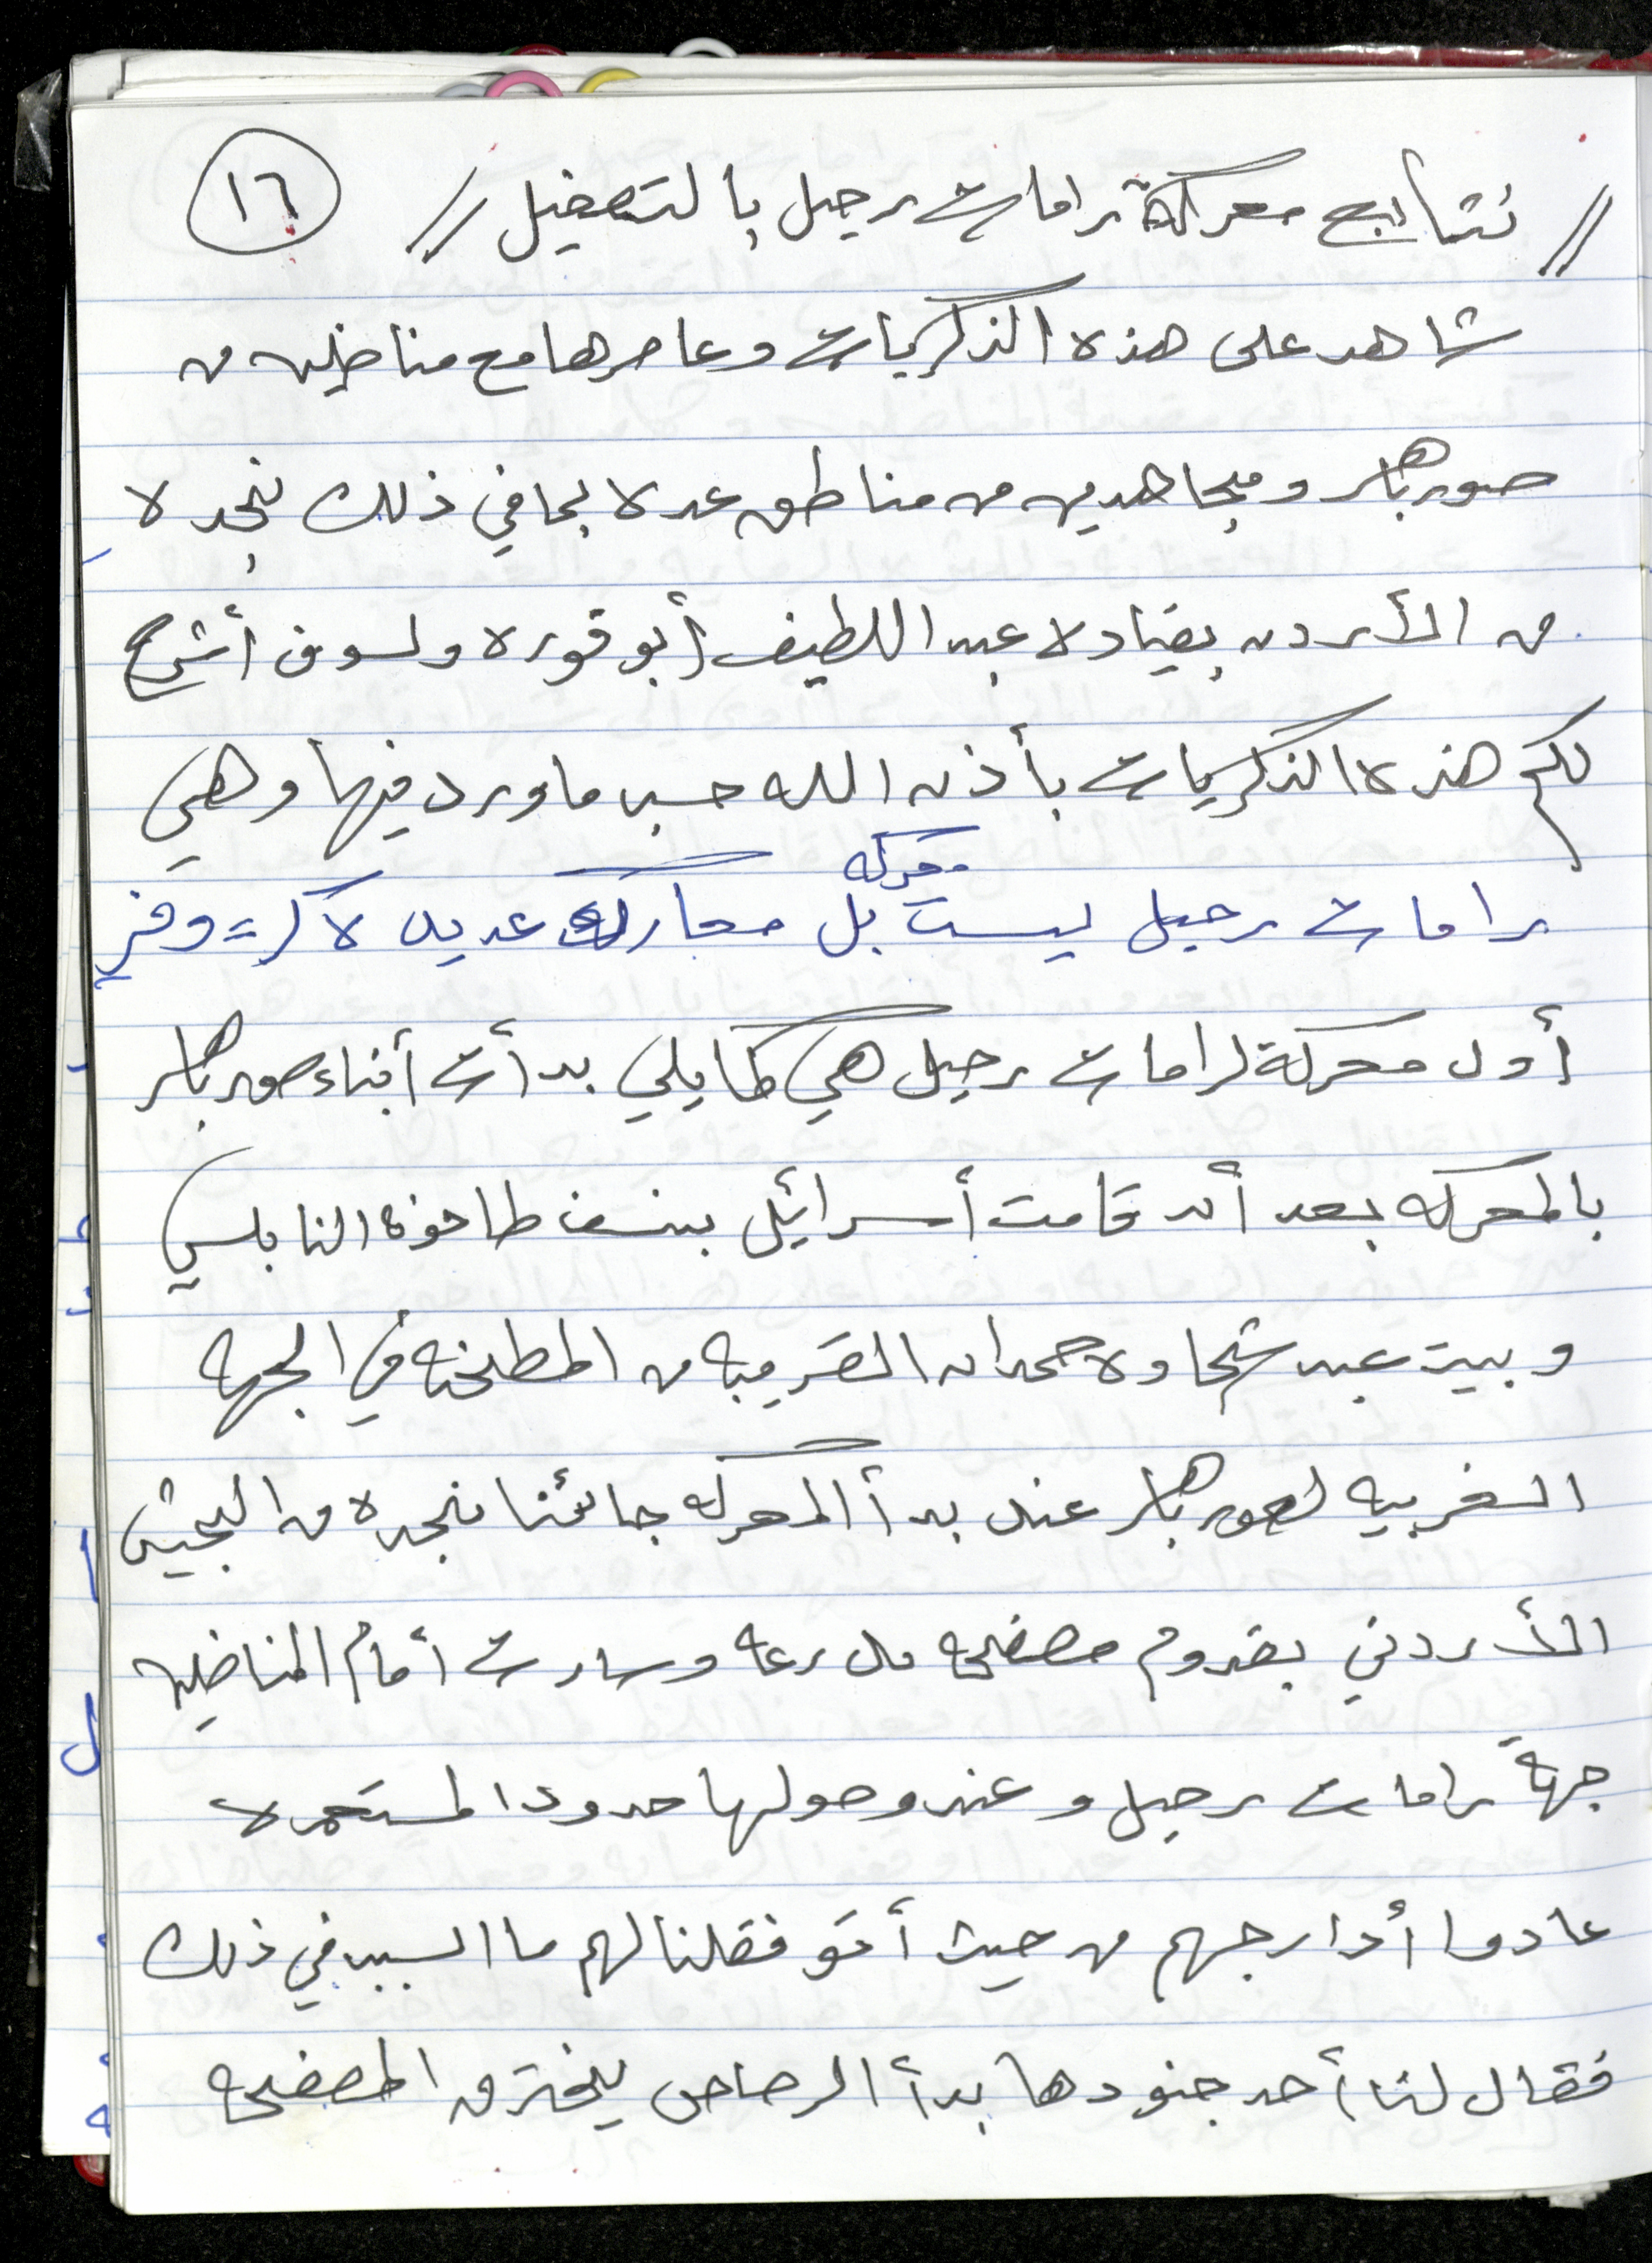 // نتائج معركة رامات رحيل بالتفصيل // ١٦
شاهد على هذه الذكريات وعاصرها مع مناضلين من
صور باهر ومجاهدين من مناطق عده بما في ذلك نجده
من الأردن بقياده عبد اللطيف أبو قوره ولسوف أشرح
لكم هذه الذكريات بأذن الله حسب ما ورد فيها وهي
رامات رحيل ليست معركه بل معارك عديده كر وفر
أول معركة لرامات رحيل هي كما يلي بدأت أبناء صور باهر
بالمعركه بعد أن قامت أسرائيل بنسف طاحونة النابلسي
وبيت عبد شحاده حمدان القريبه من المطحنه في الجهه
الغربيه لصور باهر عند بدأ المعركه جائتنا نجده من الجيش
الأردني بقدوم مصفحه مدرعه وسارت أمام المناضلين
جهة رامات رحيل وعند وصولها حدود المستعمره
عادوا أدارجهم من حيث أتو فقلنا لهم ما السبب في ذلك
فقال لنا أحد جنودها بدأ الرصاص يخترق المصفحه